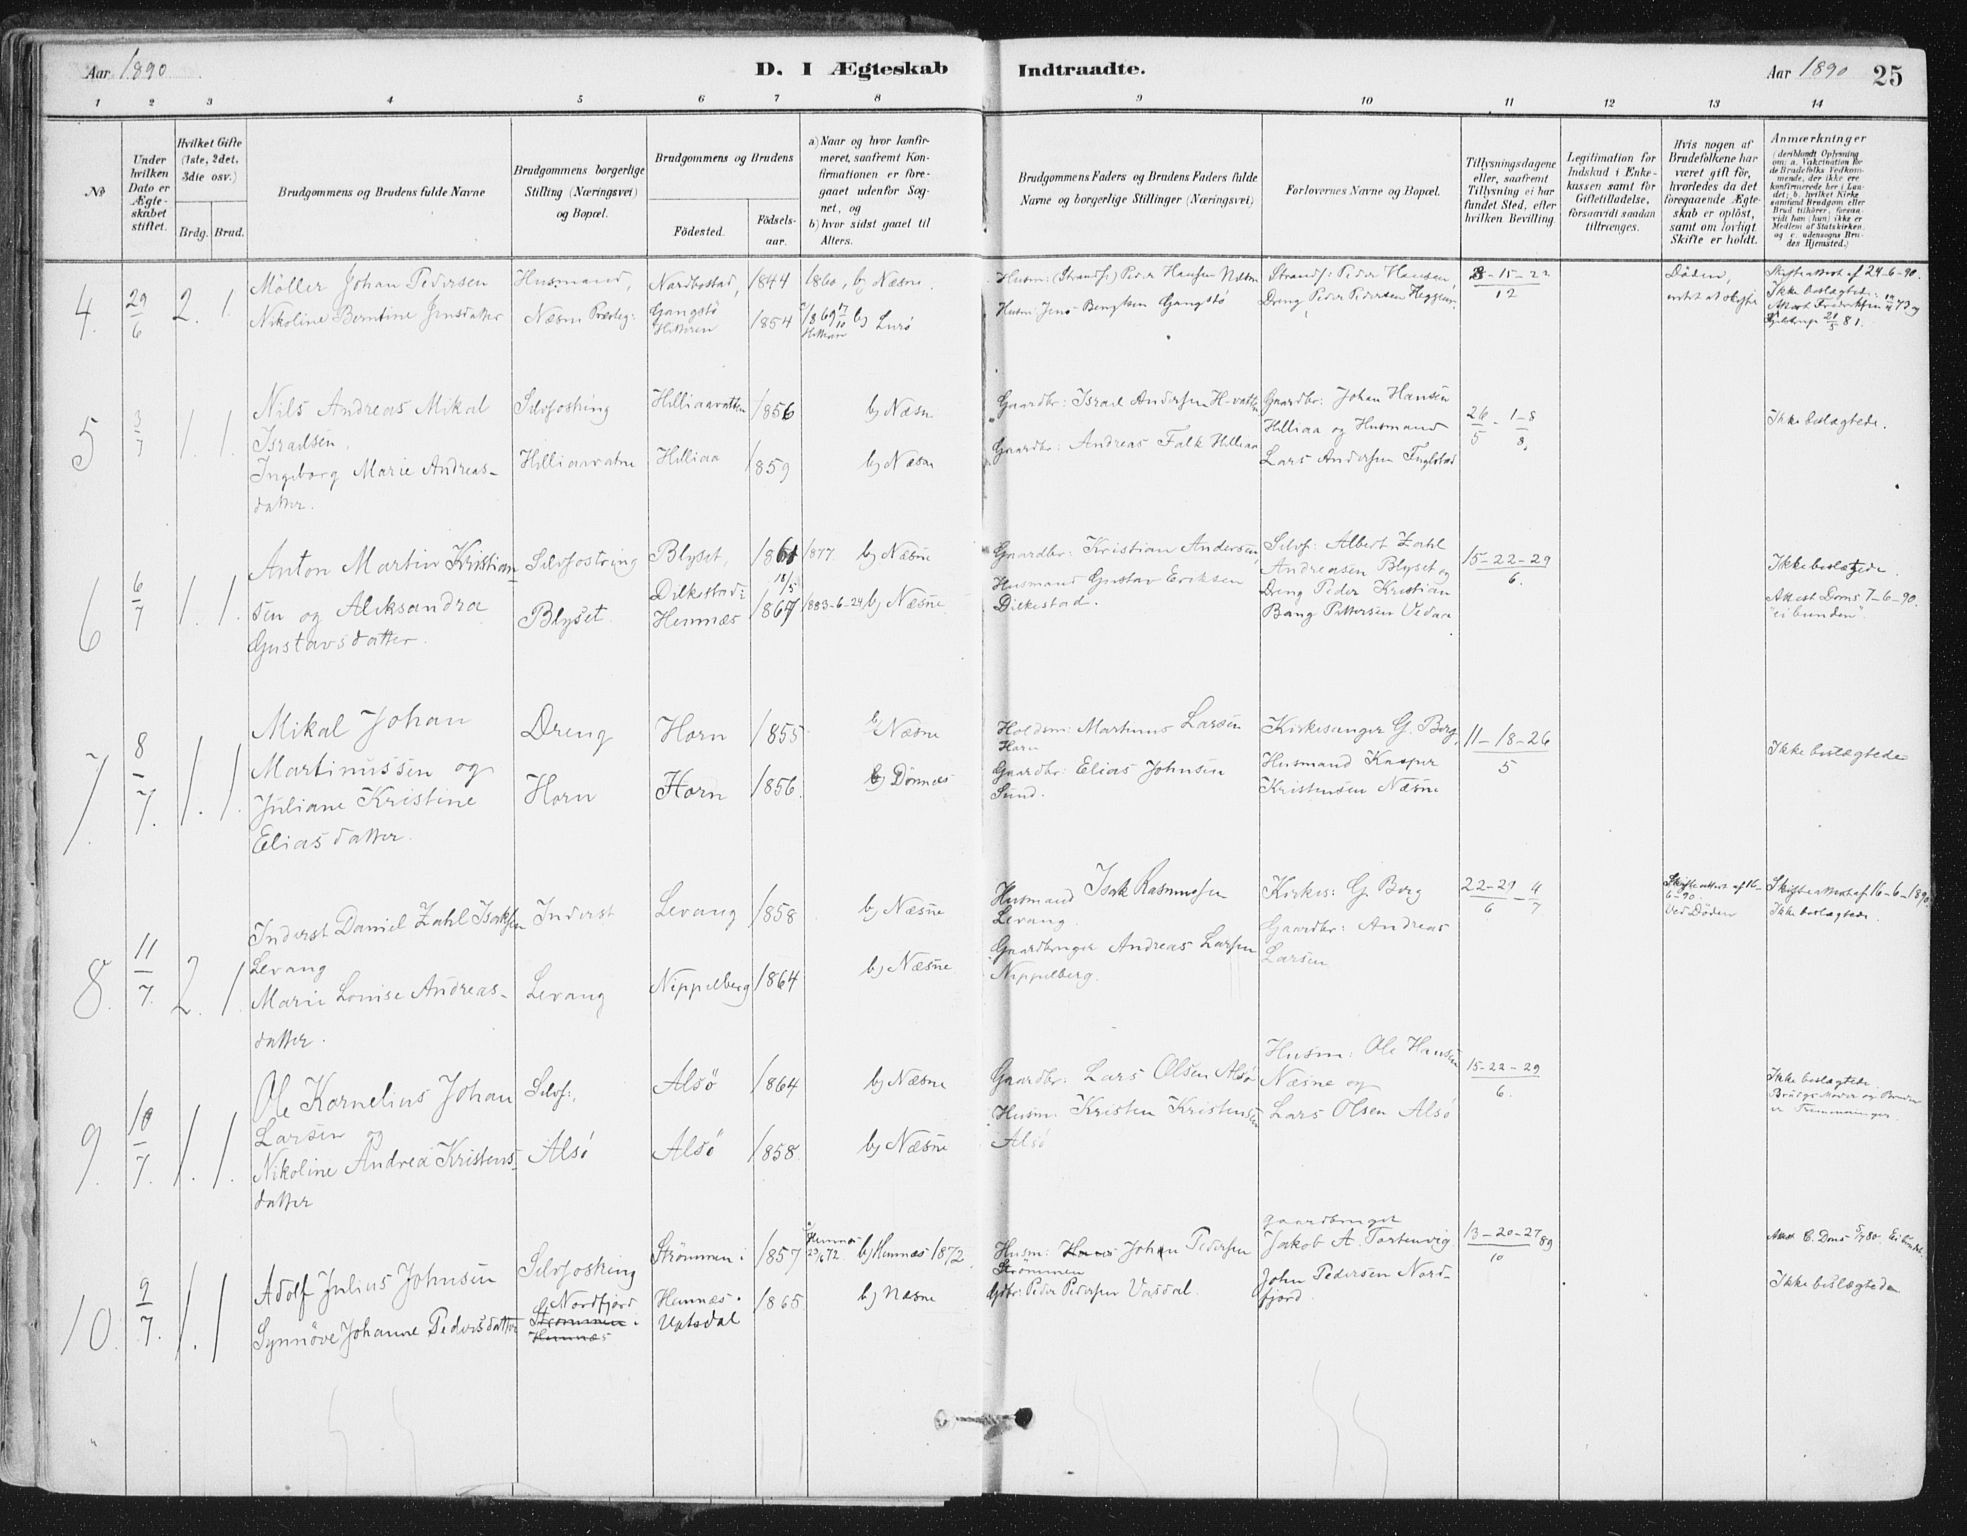 Aar 1890
D. I Ægteskab
Indtraadte.
Aar 1890
25
1 2 3 4 5 6 7 8 9 10 11 12 13 14
No
Under hvilken Dato er Ægteskabet stiftet.
Hvilket Gifte (1ste, 2det, 3die osv.)
Brdg. Brud.
Brudgommens og Brudens fulde Navne
Brudgommens borgerlige Stilling (Næringsvei) og Bopæl.
Brudgommens og Brudens
Födested.
Födselsaar.
a) Naar og hvor konfirmeret, saafremt Konfirmationen er foregaaet udenfor Sognet, og
b) hvor sidst gaaet til Alters.
Brudgommens Faders og Brudens Faders fulde Navne og borgerlige Stillinger (Næringsvei)
Forlovernes Navne og Bopæl.
Tillysningsdagene eller, saafremt Tillysning ei har fundet Sted, efter hvilken Bevilling.
Legitimation for Indskud i Enkekassen samt for Giftetilladelse, forsaavidt saadan tiltrænges.
Hvis nogen af Brudefolkene har været gift för, hvorledes da det foregaaende Ægteskab er oplöst, samt om lovligt Skifte er holdt.
Anmærkninger
(deriblandt Oplysning om: a. Vakcination for de Brudefolks Vedkommende, der ikke ere konfirmerede her i Landet; b. hvilket Kirkesamfund Brudgom eller Brud tilhörer, forsaavidt han (hun) ikke er Medlem af Statskirken, og c. udensogns Brudes Hjemsted.)
4. 29/6 2. 1.
Möller Johan Pedersen
Nikoline Berntine Jensdatter
Husmand,
Næsne Præsteg:
Nordbostad, 1844
Gangstö Hitteren 1854
1860, b) Næsne.
b) Lurö
Husm: (Strands.) Peder Hansen Næsne
Husm: Jens Bengtsen Gangstö
Strands: Peder Hansen,
Dreng Peder Pedersen
8-15-22
12
Döden,
Skifteattest af 24-6-90.
Ikke beslægtede.
5 3/7 1. 1.
Nils Andreas Mikal
Israelsen.
Ingeborg Marie Andreas-
datter.
Selvfostring
Hilliaavatne
Hilliaavatten 1856
Hilliaa 1859
b) Næsne
b) Næsne
Gaardbr: Israel Andersen H-vatten
Gaardbr: Andreas Falk Hilliaa
Gaardbr: Johan Hansen
Hilliaa og Husmand
Lars Andersen
26/5 - 1-8
Ikke beslægtede.
6 6/7 1. 1.
Anton Martin Kristian-
sen og Aleksandra
Gustavsdatter.
Selvfostring
Blyset.
Blyset, 1861
Dilkestad: 18/5
Hemnæs 1867
1877 b) Næsne
1883-6-24 b) Næsne
Gaardbr: Kristian Andersen,
Husmand Gustav Eriksen
Dilkestad.
Selvf: Albert Zahl
Andreasen Blyset og
Dreng Peder Kristian
Bang Pettersen
15-22-29
6.
Ikke beslægtede.
Attest Döns 7-6-90.
"ei bunden".
7. 8/7. 1. 1.
Mikal Johan
Martinussen og
Juliane Kristine
Eliasdatter.
Dreng
Horn
Horn 1855
Horn 1856.
b) Næsne
b) Dönnæs
Holdsm: Martinus Larsen
Horn
Gaardbr: Elias Johnsen
Sund.
Kirkesanger G. Berg,
Husmand Kasper
Kristensen Næsne
11-18-26
5
Ikke beslægtede
8. 11/7. 2. 1.
Inderst Daniel Zahl Isaksen
Levang
Marie Lovise Andreas-
datter.
Inderst
Levang
Levang 1858
Nippelberg 1864
b) Næsne
b) Næsne
Husmand Isak Rasmussen
Levang.
Gaardbruger Andreas Larsen
Nippelberg.
Kirkes: G. Berg
Gaardbr: Andreas
Larsen
22-29/6 - 4/7
Skifteattest af 16-
6-90.
Ved Döden
Skifteattest af 16-6-1890.
Ikke beslægtede.
9. 10/7. 1. 1.
Ole Kornelius Johan
Larsen og
Nikoline Andrea Kristens-
datter
Selvf:,
Alsö
Alsö 1864
Alsö 1858.
b) Næsne
b) Næsne
Gaardbr: Lars Olsen Alsö
Husm: Kristen Kristensen
Alsö
Husm: Ole Hansen
Næsne og
Lars Olsen Alsö
15-22-29
6.
Ikke beslægtede.
Brudgs Moder og Bruden
er Tremmninger.
10. 9/7. 1. 1
Adolf Julius Johnsen
Synnöve Johanne Pedersdatter
Selvfostring
Nordfjord
Strömmen i
Hemnæs
Strömmen i 1857
Hemnæs.
Vatsdal 1865
Hemnæs
b) Hemnæs 1872.
b) Næsne
Husm: Hans Johan Pedersen
Strömmen
Gdbr: Peder Pedersen Vasdal.
Gaardbruger
Jakob A. Tortenvig
John Pedersen Nord-
fjord.
13-20-27/10 89
Ikke beslægtede